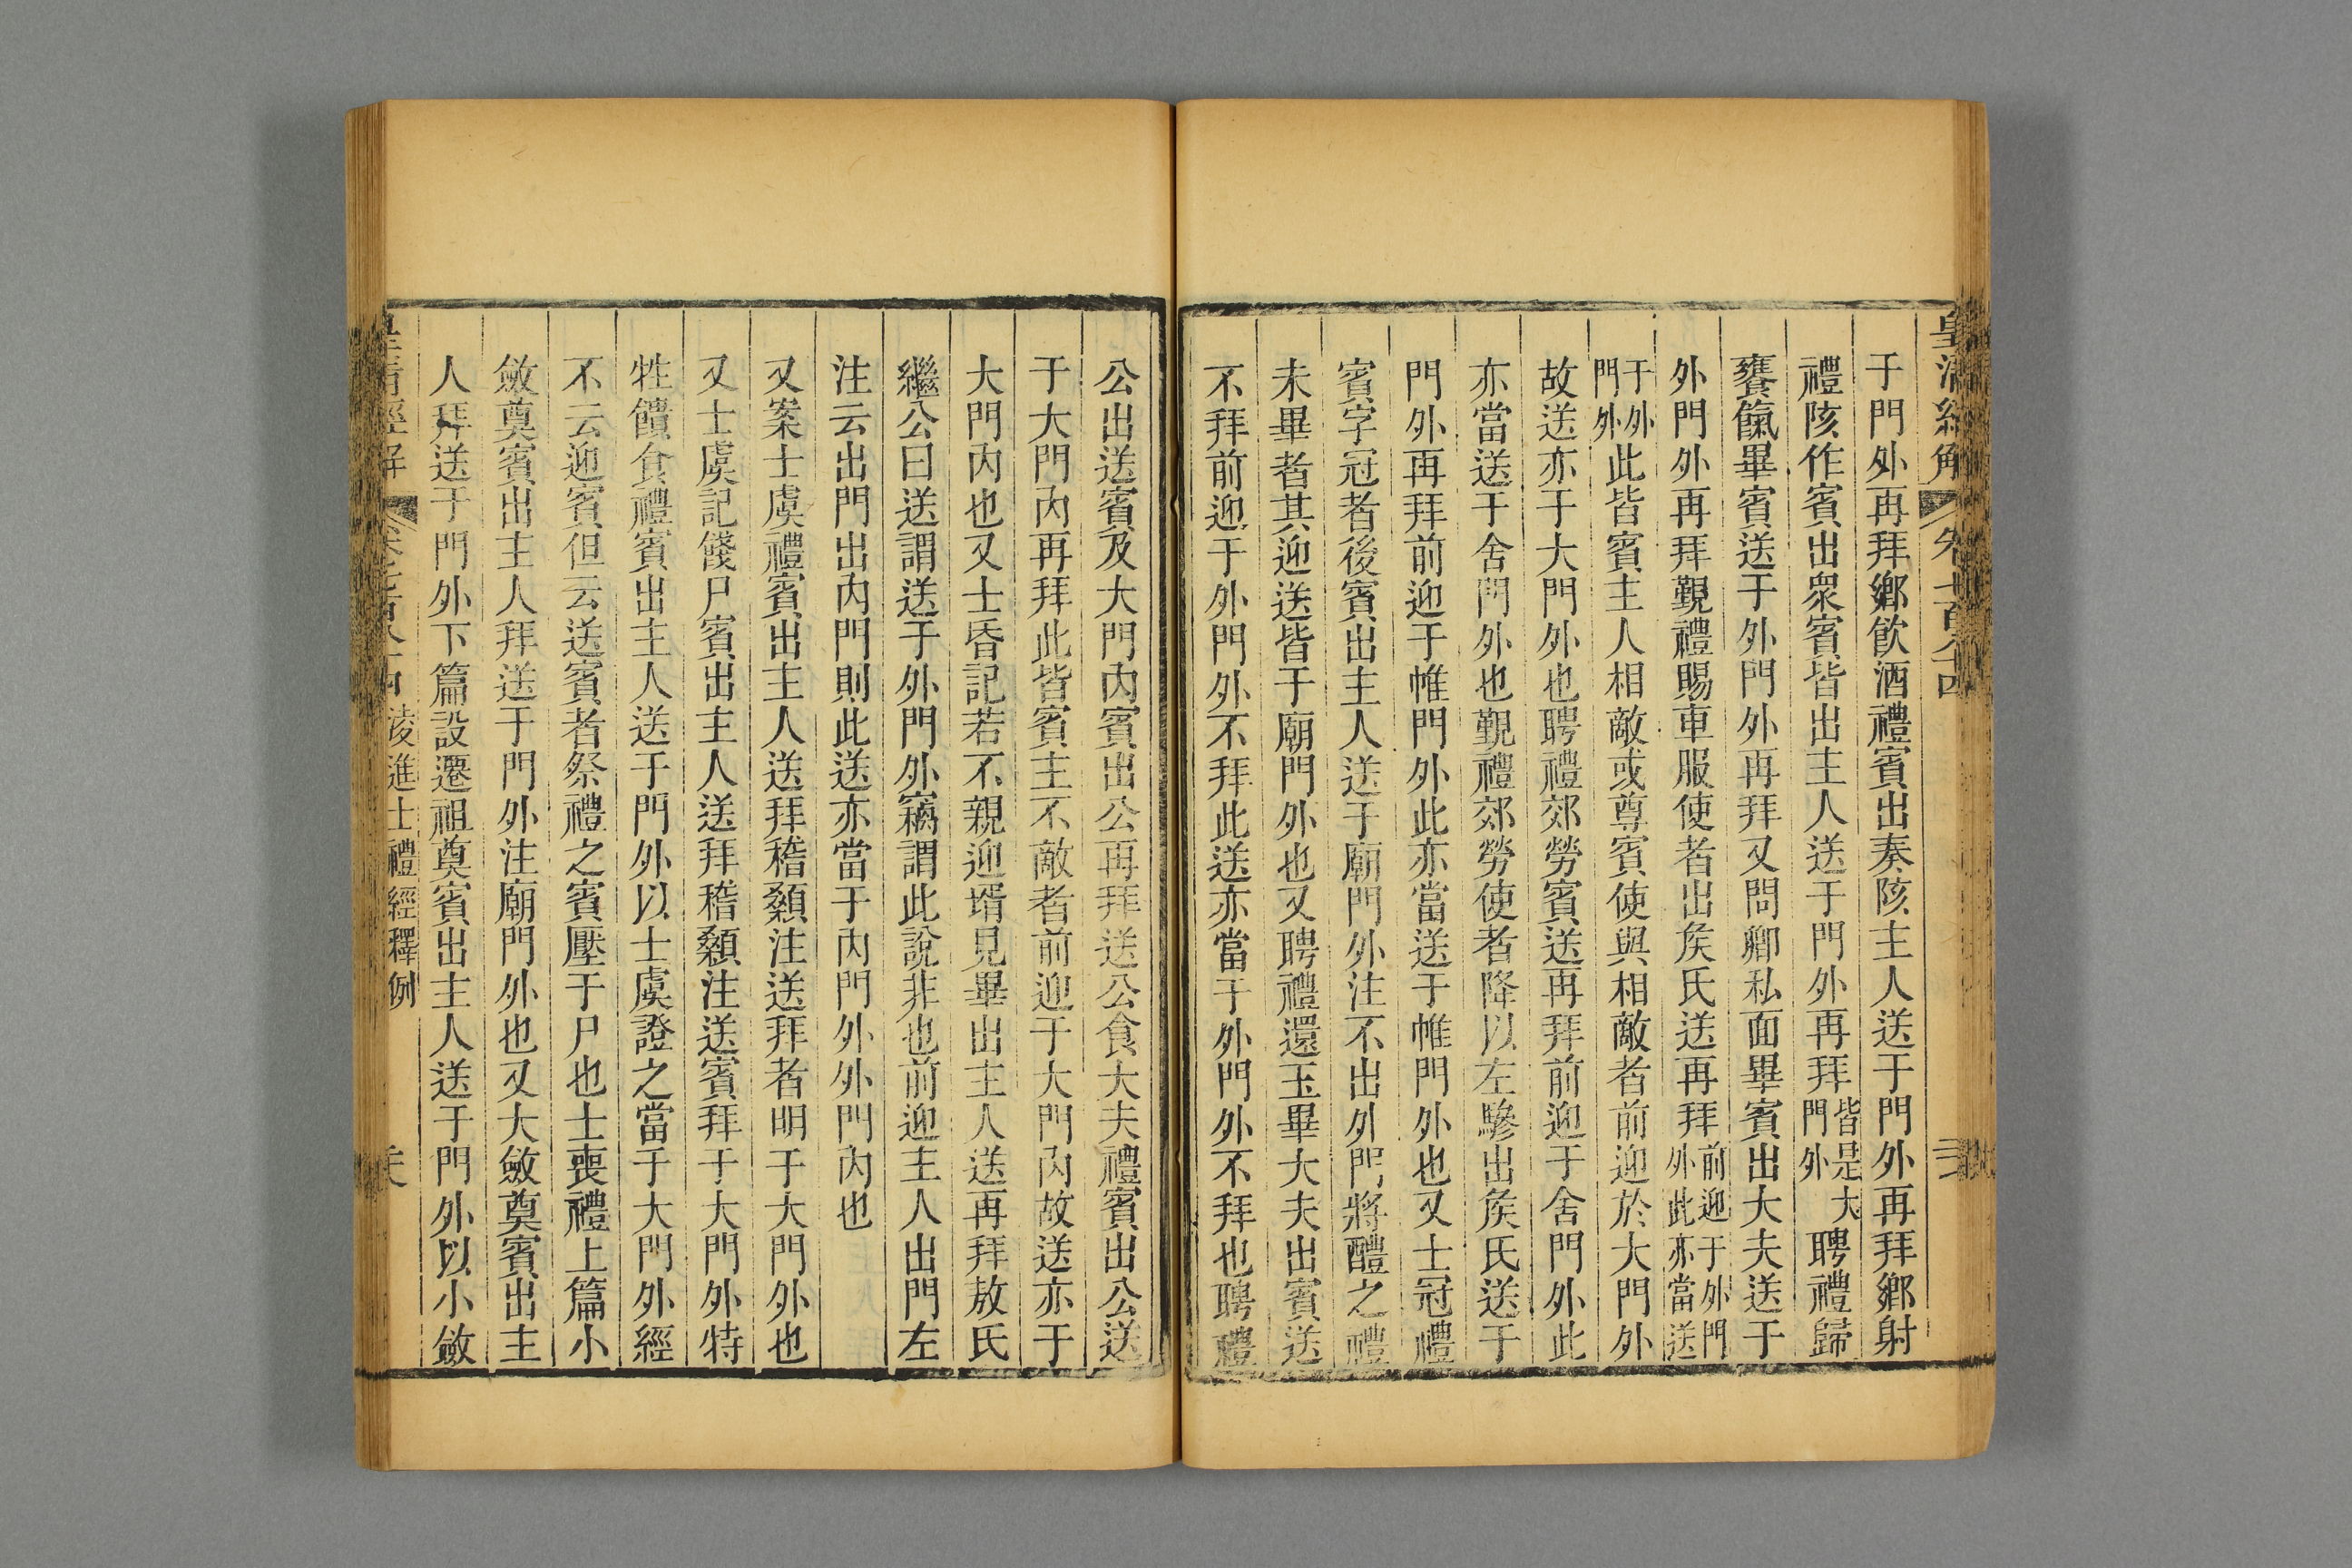 皇清經解 卷七百八十四
于門外再拜鄉飲酒禮賓出奏陔主人送于門外再拜鄉射
禮陔作賓出衆賓皆出主人送于門外再拜皆是大門外聘禮歸
饔餼畢賓送于外門外再拜又問卿私面畢賓出大夫送于
外門外再拜覲禮賜車服使者出矦氏送再拜前迎于外門外此亦當送
于外門外此皆賓主人相敵或尊賓使與相敵者前迎於大門外
故送亦于大門外也聘禮郊勞賓送再拜前迎于舍門外此
亦當送于舍門外也覲禮郊勞使者降以左驂出矦氏送于
門外再拜前迎于帷門外此亦當送于帷門外也又士冠禮
賓字冠者後賓出主人送于廟門外注不出外門將醴之禮
未畢者其迎送皆于廟門外也又聘禮還玉畢大夫出賓送
不拜前迎于外門外不拜此送亦當于外門外不拜也聘禮
公出送賓及大門內賓出公再拜送公食大夫禮賓出公送
于大門內再拜此皆賓主不敵者前迎于大門內故送亦于
大門內也又士昏記若不親迎壻見畢出主人送再拜敖氏
繼公曰送謂送于外門外竊謂此說非也前迎主人出門左
注云出門出內門則此送亦當于內門外外門內也
又案士虞禮賓出主人送拜稽顙注送拜者明于大門外也
又士虞記餞尸賓出主人送拜稽顙注送賓拜于大門外特
牲饋食禮賓出主人送于門外以士虞證之當于大門外經
不云迎賓但云送賓者祭禮之賓壓于尸也士喪禮上篇小
斂奠賓出主人拜送于門外注廟門外也又大斂奠賓出主
人拜送于門外下篇設遷祖奠賓出主人送于門外以小斂
皇清經解 卷七百八十四 淩進士禮經釋例